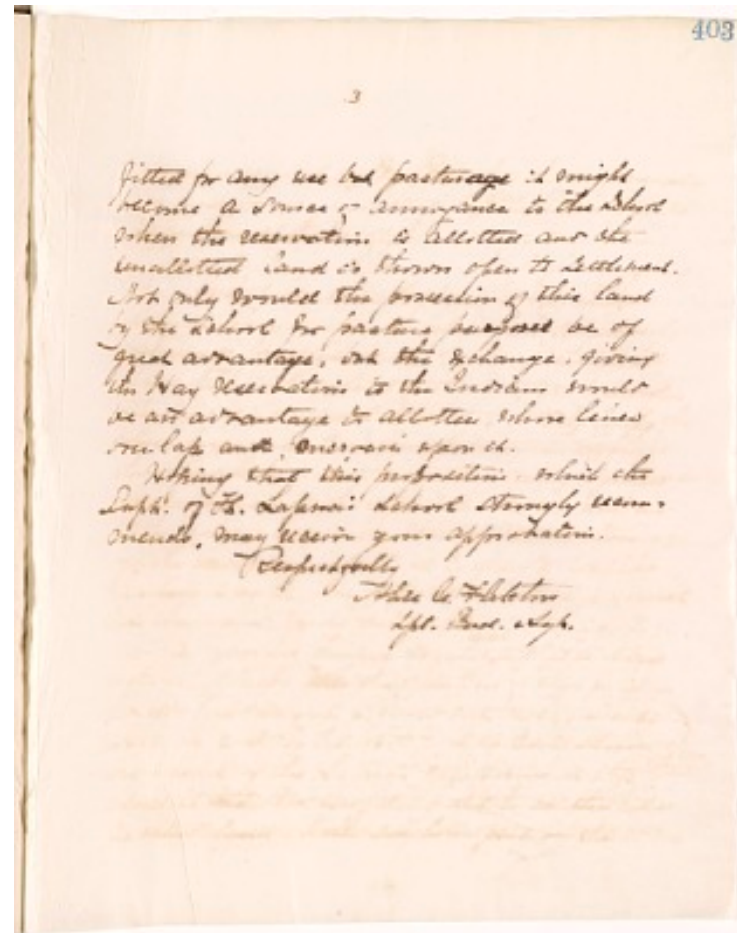 403
3
fitted for any use but pasturage it might
become a source of annoyance to the School
when the reservation is allotted and the
unallotted land is thrown open to settlement.
Not only would the possession of this land
by the School for pasture purposes be of
great advantage, but the exchange, giving
the Hay reservation to the Indians would
be an advantage to allottees whose lines
overlap and upon it.
Hoping that this proposition which the
Supt. of Ft. Lapwai School strongly recom-
mends, may receive your approbation.
Respectfully
Alice C. Fletcher
Spl.